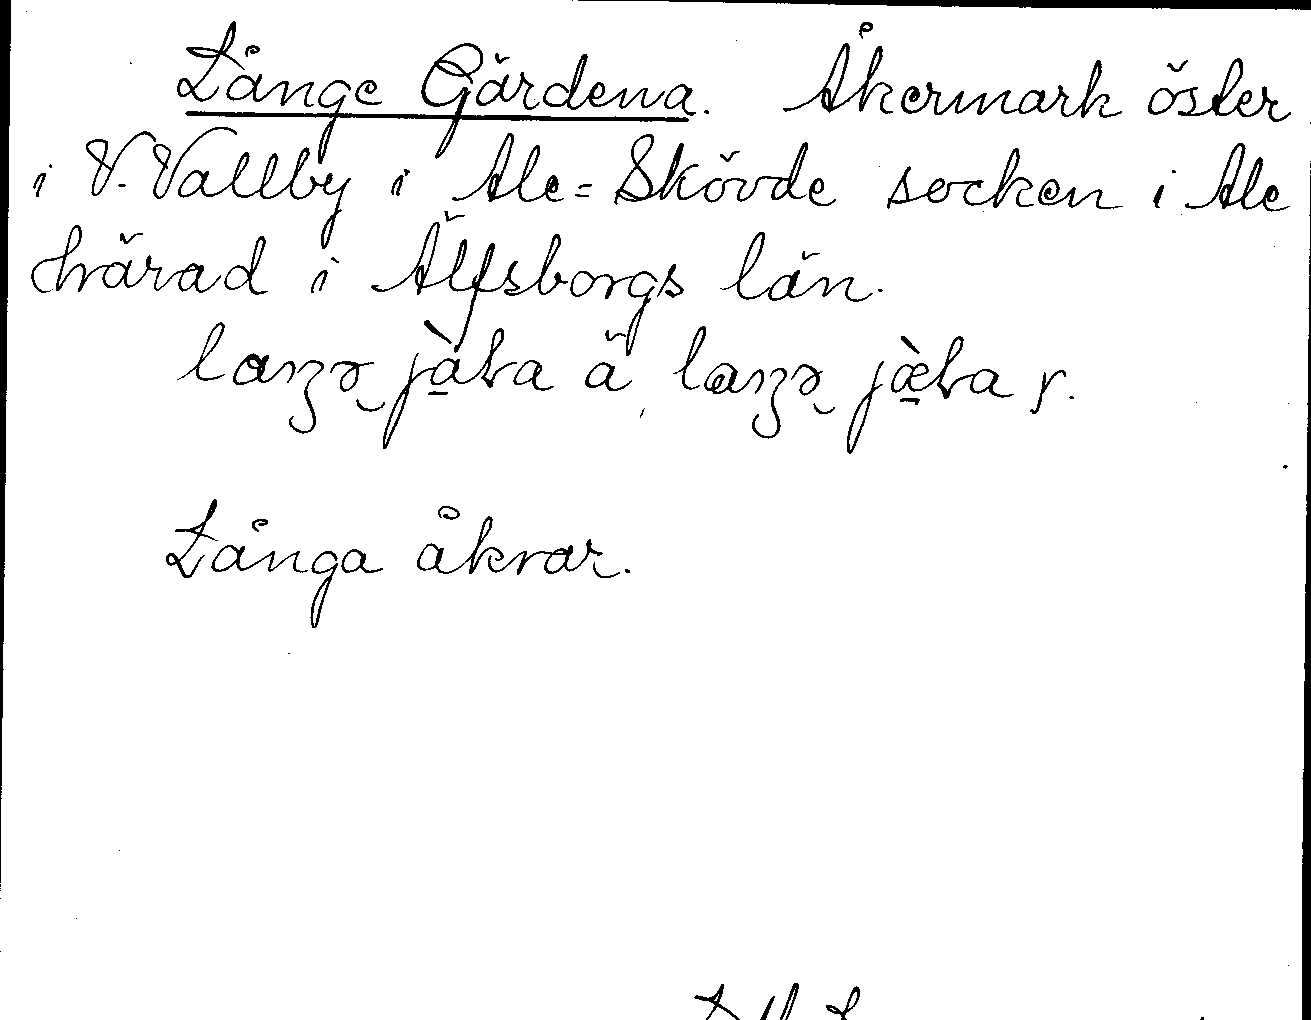 Långe Gärdena. Åkermark öster
i V. Vallby i Ale=Skövde socken i Ale
härad i Älfsborgs län.
Långa åkrar.